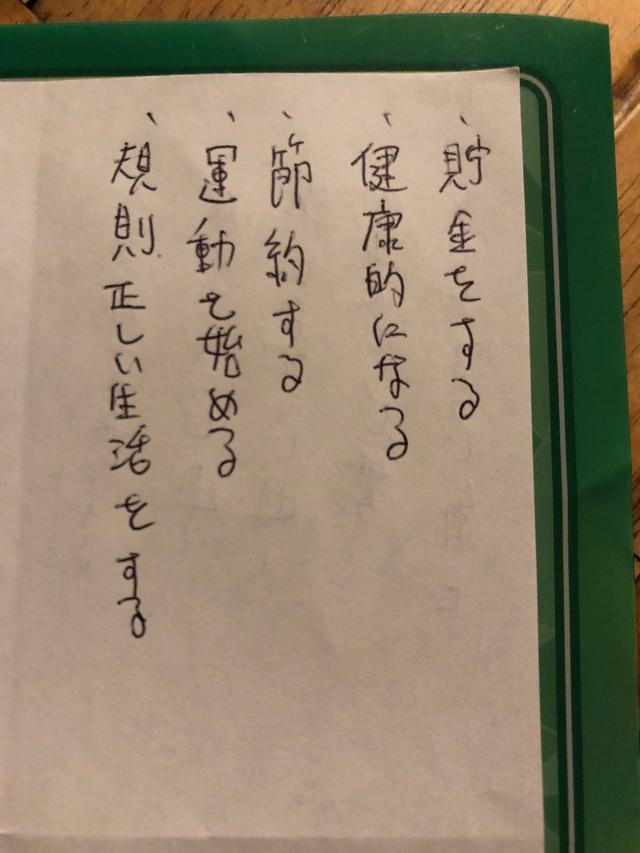 、貯金をする
、健康的になる
、節約する
、運動を始める
、規則正しい生活をする